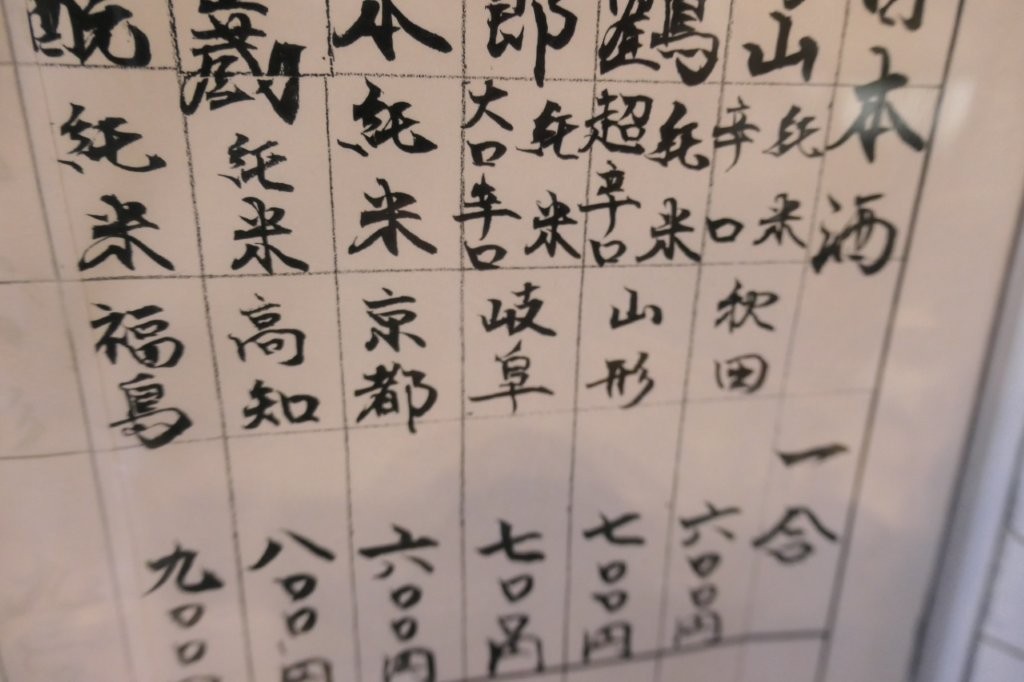 日本酒 一合
山 純米 辛口 秋田 六〇〇円
純米 超辛口 山形 七〇〇円
郎 純米 大口辛口 岐阜 七〇〇円
本 純米 京都 六〇〇円
蔵 純米 高知 八〇〇円
純米 福島 九〇〇円